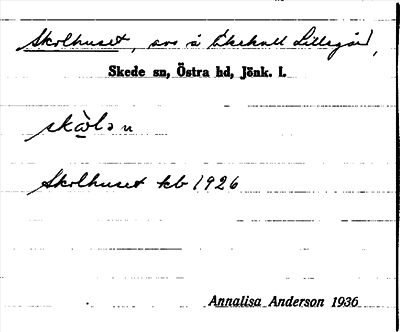 Skolhuset, avs å Ekekull Lillegård,
Skede sn, Östra hd, Jönk. l.
skòlən
Skolhuset kb 1926
Annalisa Anderson 1936